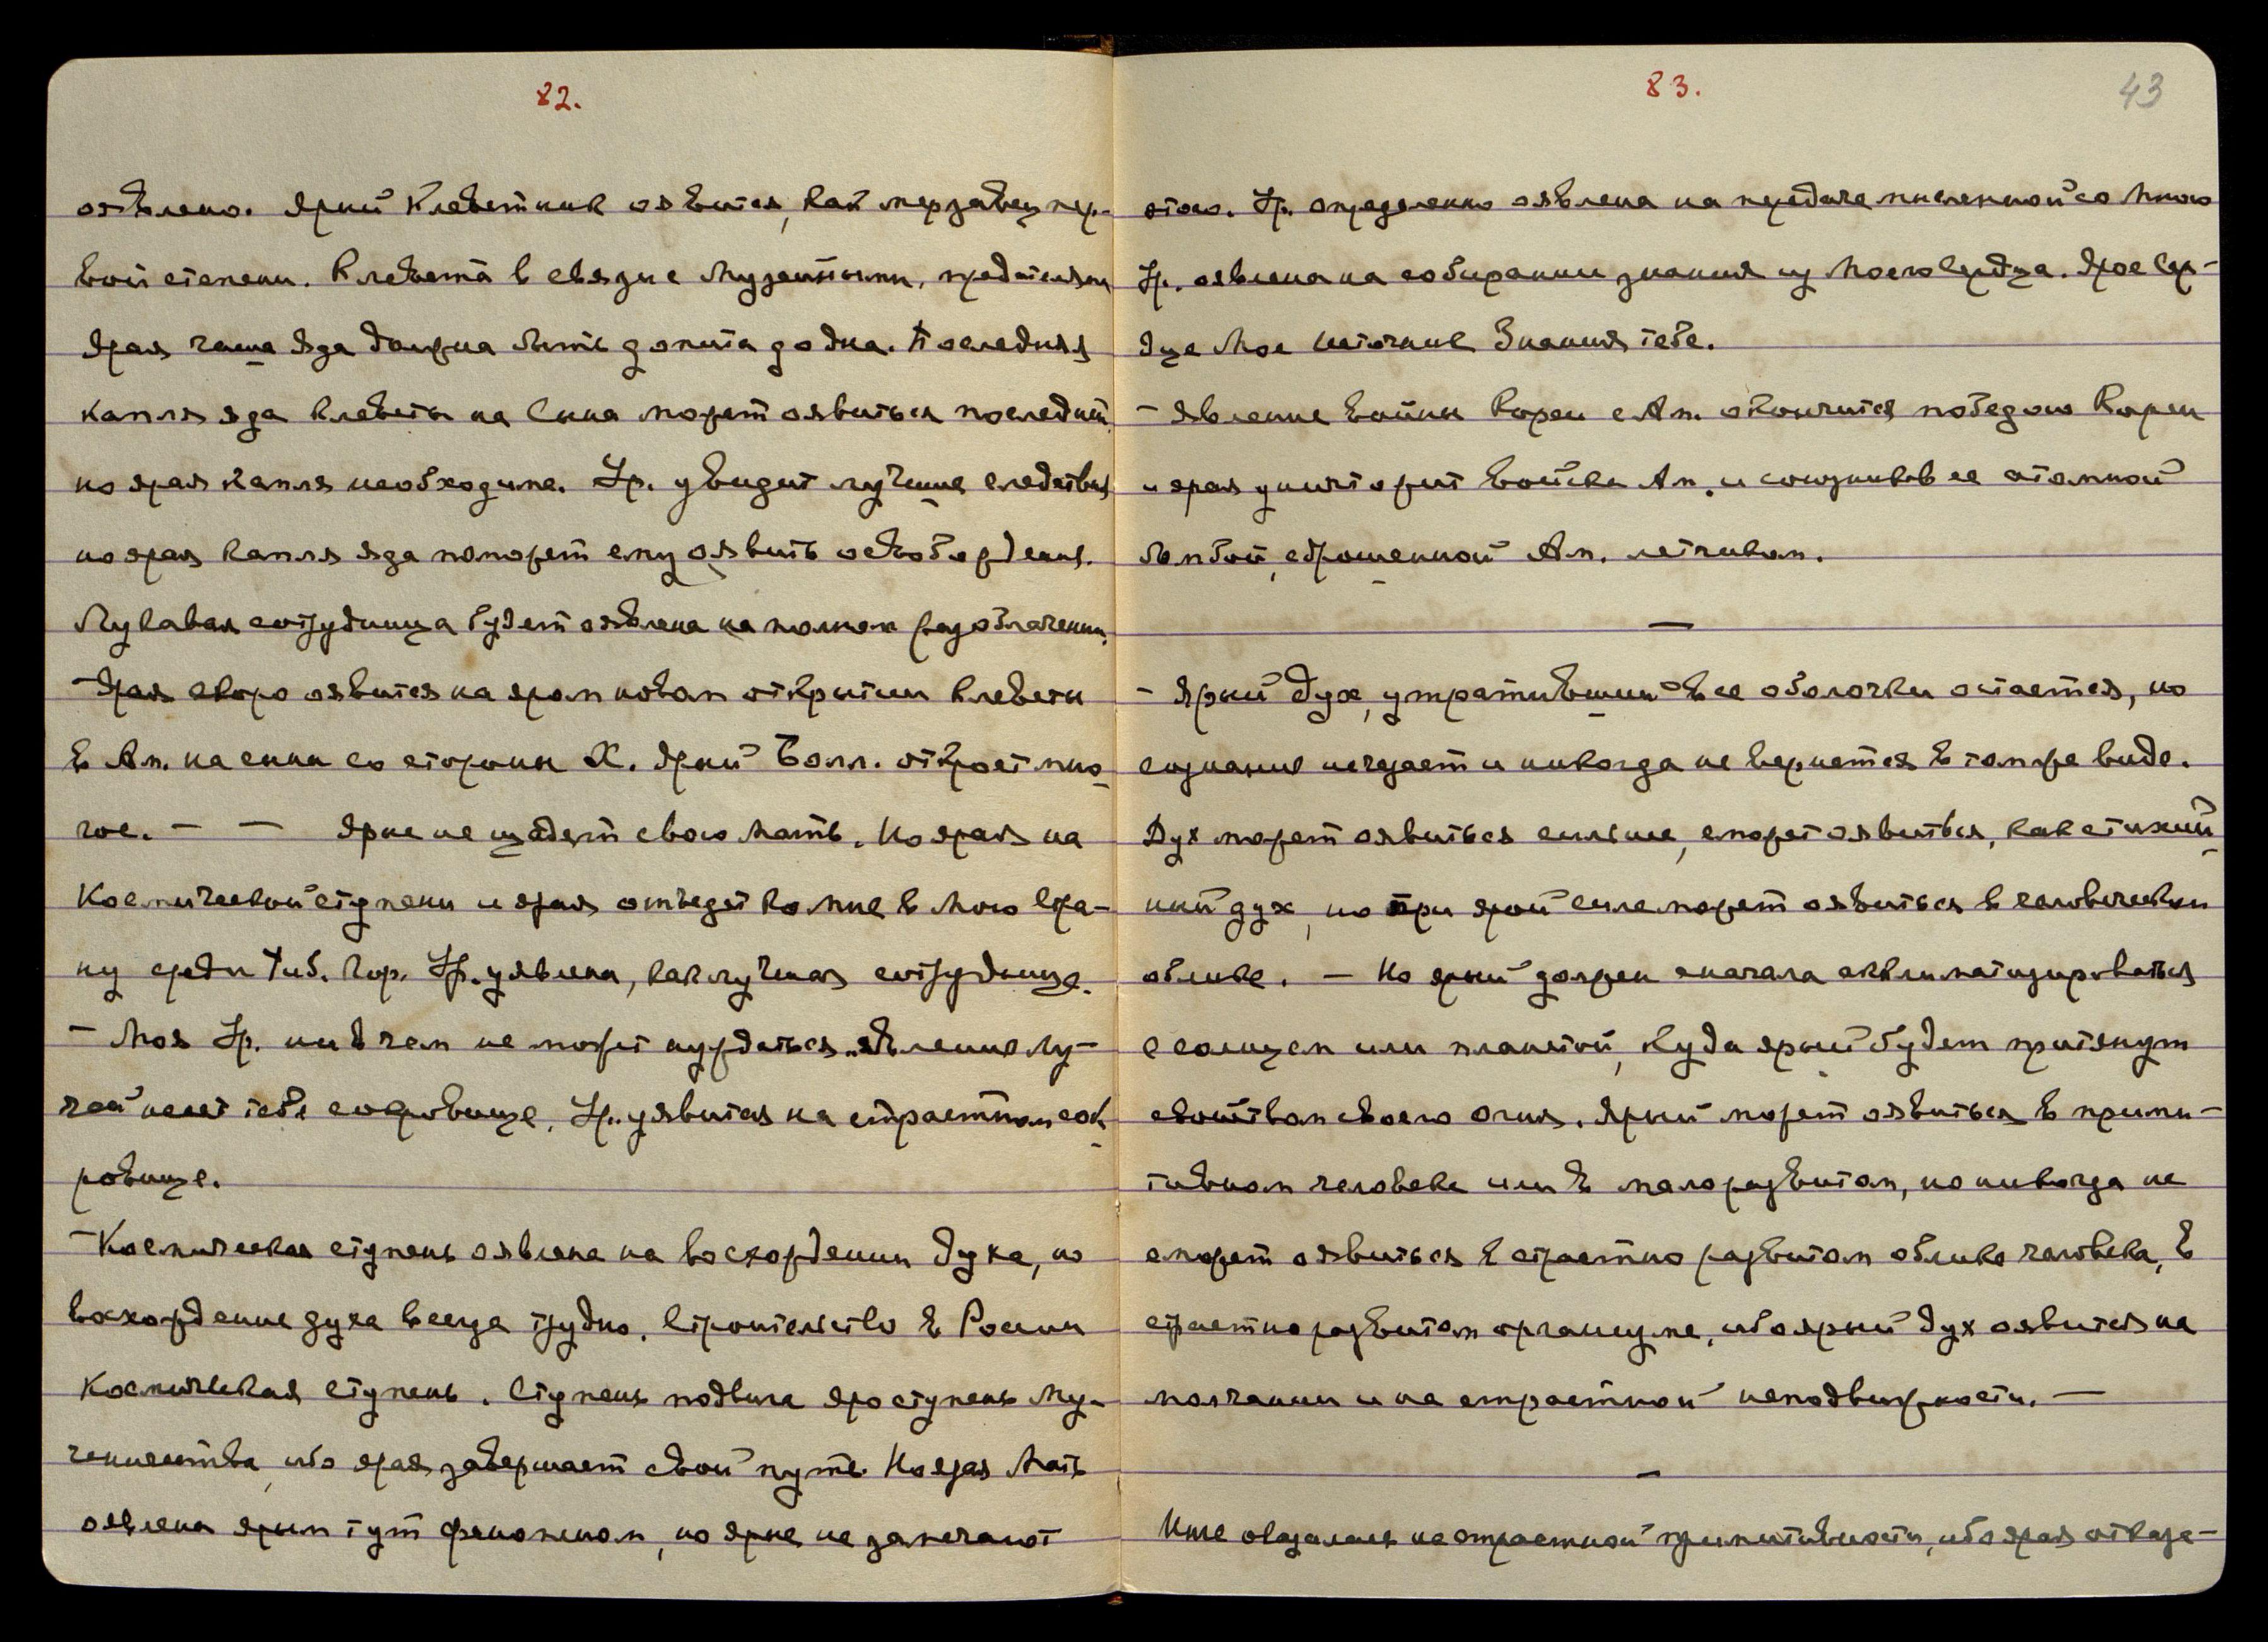 82.
оявлено. Ярый Клеветник оявится, как мерзавец пер-
вой степени. Клевета в связи с Музейными, предателям
Ярая чаша яда должна быть допита до дна. Последняя
капля яда клеветы на Сына может оявиться последний,
но ярая капля необходима. Ур. увидит лучшие следствия
но ярая капля яда поможет ему оявить освобождение.
Лукавая сотрудница будет оявлена на полном разоблачении.
- Ярая скоро оявится на яром новом открытии клеветы
в Ам. на сына со стороны Х. Ярый Болл. откроет мно-
гое. - - Ярые не щадят свою Мать. Но ярая на
Космической ступени и ярая отъедет ко мне в Мою Стра-
ну среди Тиб. Гор. Ур. уявлена, как лучшая сотрудница.
- Моя Ур. ни в чем не может нуждаться. Явление Лу-
чей несет тебе сокровище. Ур. уявится на страстном сок-
ровище.
- Космическая ступень оявлена на восхождении духа, но
восхождение духа всегда трудно. Строительство в России
Космическая ступень. Ступень подвига яро ступень Му-
ченичества, ибо ярая завершает свой путь. Но ярая Мать
оявлена ярым тут феноменом, но ярые не замечают
83.
43
этого. Ур. определенно оявлена на передаче мысленной со Мною
Ур. оявлена на собирании знания из Моего Сердца. Ярое Сер-
дце Мое Источник Знания тебе.
- Явление Войны Кореи с Ам. окончится победою Кореи
и ярая уничтожит Войска Ам. и союзников ее атомной
бомбой, сброшенной Ам. летчиком.
—
- Ярый Дух, утративший все оболочки остается, но
сознание исчезает и никогда не вернется в том же виде.
Дух может оявиться сильнее, сможет оявиться, как стихий-
ный дух, но при ярой силе может оявиться в человеческом
облике. - Но ярый должен сначала акклиматизироваться
с солнцем или планетой, куда ярый будет притянут
свойством своего огня. Ярый может оявиться в прими-
тивном человеке или в малоразвитом, но никогда не
сможет оявиться в страстно развитом облике человека, в
страстно развитом организме, ибо ярый дух оявится на
молчании и на страстной неподвижности. —
—
оказалась на страстной примитивности, ибо ярая отказа-